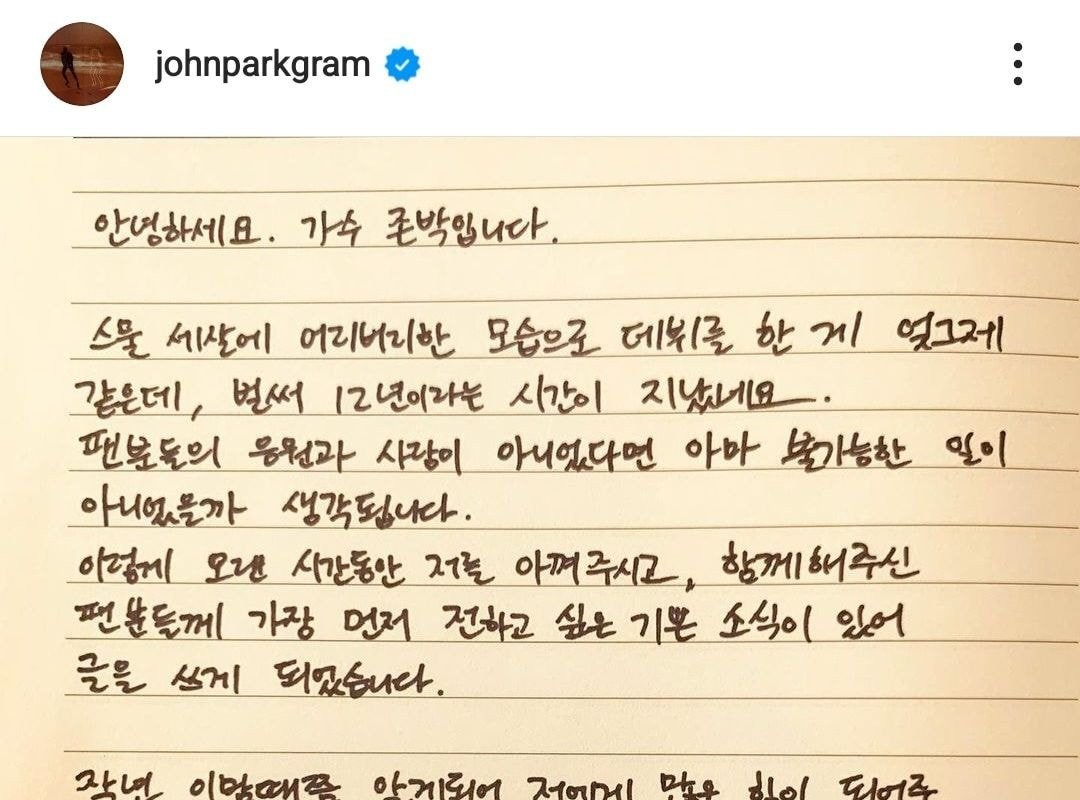 johnparkgram
안녕하세요. 가수 존박입니다.
스물 세살에 어리버리한 모습으로 데뷔를 한 게 엊그제
같은데, 벌써 12년이라는 시간이 지났네요.
팬분들의 응원과 사랑이 아니었다면 아마 불가능한 일이
아니었을까 생각됩니다.
이렇게 오랜 시간동안 저를 아껴주시고, 함께해주신
팬분들께 가장 먼저 전하고 싶은 기쁜 소식이 있어
글을 쓰게 되었습니다.
작년 이맘때쯤 알게되어 저에게 많은 힘이 되어주